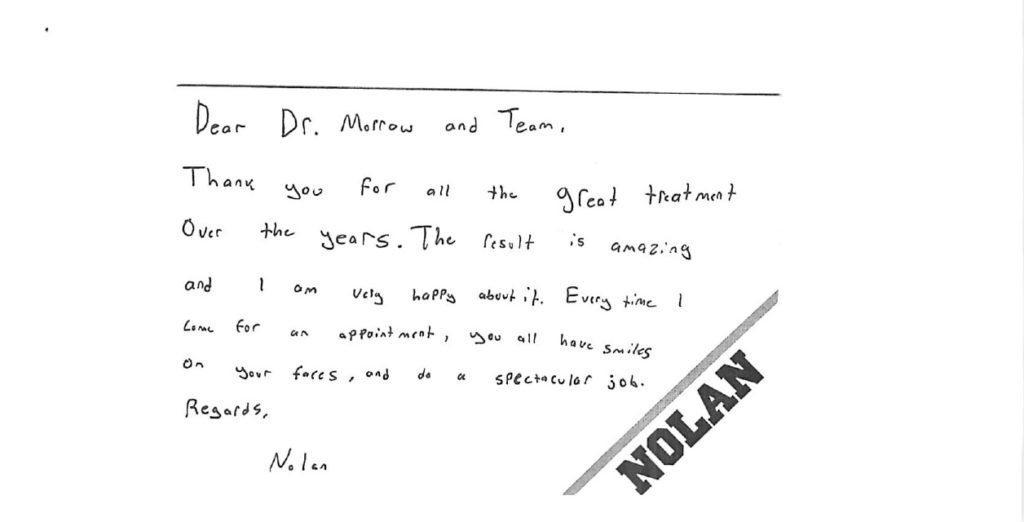 Dear Dr. Morrow and Team,
Thank you for all the great treatment
Over the years. The result is amazing
and I am very happy about it. Every time I
come for an appointment, you all have smiles
on your faces, and do a spectacular job.
Regards,
Nolan
NOLAN